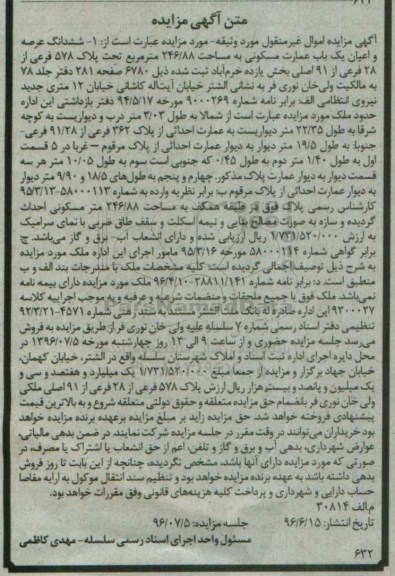 متن آگهی مزایده
آگهی مزایده اموال غیرمنقول مورد وثیقه- مورد مزایده عبارت است از: ۱- ششدانگ عرصه
و اعیان یک باب عمارت مسکونی به مساحت ۲۴۶/۸۸ مترمربع تحت پلاک ۵۷۸ فرعی از
۲۸ فرعی از ۹۱ اصلی بخش یازده خرم‌آباد ثبت شده ذیل ۶۷۸۰ صفحه ۲۸۱ دفتر جلد ۷۸
به مالکیت ولی‌خان نوری فر به نشانی الشتر خیابان آیت‌اله کاشانی خیابان ۱۲ متری جدید
نیروی انتظامی الف: برابر نامه شماره ۹۰۰۰۲۶۹ مورخه ۹۴/۵/۱۷ دفتر بازداشتی این اداره
حدود ملک مورد مزایده عبارت است از شمالا به طول ۳/۰۳ متر درب و دیواریست به کوچه
شرقا به طول ۲۲/۳۵ متر دیواریست به عمارت احداثی از پلاک ۳۶۲ فرعی از ۹۱/۲۸ فرعی-
جنوبا: به طول ۱۹/۵ متر دیوار به دیوار عمارت احداثی از پلاک مرقوم – غربا در ۵ قسمت
اول به طول ۱/۴۰ متر دوم به طول ۰/۴۵ که جنوبی است سوم به طول ۱۰/۰۵ متر هر سه
قسمت دیوار به دیوار عمارت پلاک مذکور. چهارم و پنجم به طول‌های ۱۸/۵ و ۹/۹۰ متر دیوار
به دیوار عمارت احداثی از پلاک مرقوم ب: برابر نظریه وارده به شماره ۵۸۰۰۰۱۱۳-۹۵/۳/۱۳
کارشناس رسمی پلاک فوق در طبقه همکف به مساحت ۲۴۶/۸۸ متر مسکونی احداث
گردیده و سازه به صورت مصالح بنایی و نیمه اسکلت و سقف طاق ضربی با نمای سرامیک
به ارزش ۱/۷۳۱/۵۲۰/۰۰۰ ریال ارزیابی شده و دارای انشعاب آب- برق و گاز می‌باشد. ج
برابر گواهی شماره ۵۸۰۰۰۱۱۴ مورخه ۹۵/۳/۱۶ مامور اجرای این اداره ملک مورد مزایده
به شرح ذیل توصیف اجمالی گردیده است: کلیه مشخصات ملک با مندرجات بند الف و ب
منطبق است. د: برابر نامه شماره ۲۸۸۱۱/۱۴۱-۹۶/۴/۱۰ ملک مورد مزایده دارای بیمه نامه
نمی‌باشد. ملک فوق با جمیع ملحقات و منضمات شرعیه و عرفیه و به موجب اجراییه کلاسه
۹۳۰۰۰۲۷ این اداره صادره له بانک به استناد سند رهنی شماره ۴۵۷۱-۹۲/۳/۲۱
تنظیمی دفتر اسناد رسمی شماره ۷ سلسله علیه ولی خان نوری فر از طریق مزایده به فروش
می‌رسد جلسه مزایده حضوری و از ساعت ۹ الی ۱۳ روز چهارشنبه مورخه ۱۳۹۶/۰۷/۵ در
محل دایره اجرای اداره ثبت اسناد و املاک شهرستان سلسله واقع در الشتر، خیابان کهمان،
خیابان جهاد برگزار و مزایده از جمعا مبلغ ۱/۷۳۱/۵۲۰/۰۰۰ یک میلیارد و هفتصد و سی و
یک میلیون و پانصد و بیست هزار ریال ارزش پلاک ۵۷۸ فرعی از ۲۸ فرعی از ۹۱ اصلی ملکی
ولی خان نوری فر بانضمام حق مزایده متعلقه و حقوق دولتی متعلقه شروع و به بالاترین قیمت
پیشنهادی فروخته خواهد شد. حق مزایده زاید بر مبلغ مزایده برعهده برنده مزایده خواهد
بود خریداران می‌توانند در وقت مقرر در جلسه مزایده شرکت نمایند. در ضمن بدهی مالیاتی،
عوارض شهرداری، بدهی آب و برق و گاز و تلفن، اعم از حق انشعاب یا اشتراک یا مصرف، در
صورتی که مورد مزایده دارای آنها باشد، مشخص نگردیده، چنانچه از این بابت تا روز فروش
بدهی داشته باشد به عهده برنده مزایده خواهد بود و تنظیم سند انتقال موکول به ارایه مفاصا
حساب دارایی و شهرداری و پرداخت کلیه هزینه‌های قانونی وفق مقررات خواهد بود.
م‌الف ۳۰۸۱۴
تاریخ انتشار: ۹۶/۶/۱۵ جلسه مزایده: ۹۶/۰۷/۵
مسئول واحد اجرای اسناد رسمی سلسله- مهدی کاظمی
۶۳۲